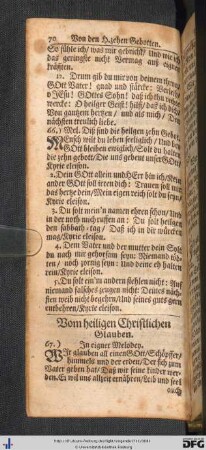 70 Von den H. zehen Geboten.
So fühle ich/ was mir gebricht/ Und wie ich
das geringste nicht Vermag aus eignen
kräfften.
12. Drum gib du mir von deinem thron/
GOtt Vater! gnad und stärcke: Verleih/
JEsu! GOttes Sohn! daß ich thu
wercke: O heilger Geist! hilff/ daß ich dich
Von gantzen hertzen/ und als mich/ Den
nächsten treulich liebe.
66.) Mel. Diß sind die heilgen zehn Gebot.
MEnsch wilt du leben seeliglich/ Und bey
GOtt bleiben ewiglich/ Solt du halten
die zehn gebott/ Die uns gebeut unser GOtt/
Kyrie eleison.
2. Dein GOtt allein und HErr bin ich/ Kein
ander GOtt soll irren dich: Trauen soll mir
das hertze dein/ Mein eigen reich solt du seyn/
Kyrie eleison.
3. Du solt mein'n namen ehren schon/ Und
in der noth mich ruffen an: Du solt heilgen
den sabbath-tag/ Daß ich in dir würcken
mag/ Kyrie eleison.
4. Dem Vater und der mutter dein Solt
du nach mir gehorsam seyn: Niemand töd-
ten/ noch zornig seyn: Und deine eh halten
rein/ Kyrie eleison.
5. Du solt ein'm andern stehlen nicht: Auf
niemand falsches zeugen nicht: Deines näch-
sten weib nicht begehren/ Und seines guts gern
entbehren/ Kyrie eleison.
Vom heiligen Christlichen
Glauben.
67.) In eigner Melodey.
WIr glauben all an einen GOtt/ Schöpffer/
himmels und der erden/ Der sich zum
Vater geben hat/ Daß wir seine kinder wer-
den. Er wil uns allzeit ernähren/ Leib und seel
auch
DFG